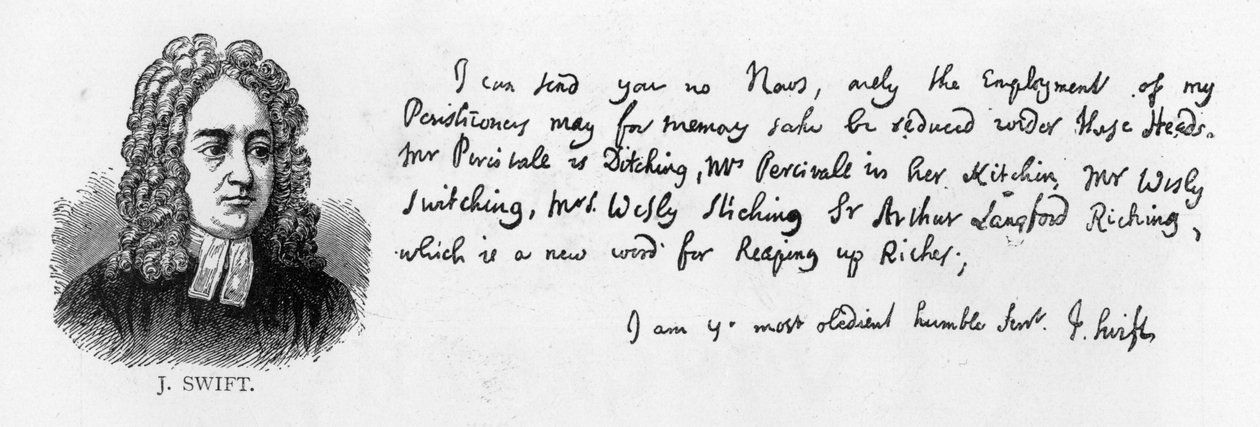 I can send you no News, onely the Employment of my
Parishioners may for memory sake be reduced under these Heads.
Mr Percivale is Ditching, Mrs Percivale in her Kitchin, Mr Wesly
Switching, Mrs. Wesly Stiching Sr Arthur Langford Riching,
which is a new word for Heaping up Riches;
I am yr most obedient humble Servt. J. Swift
J. SWIFT.